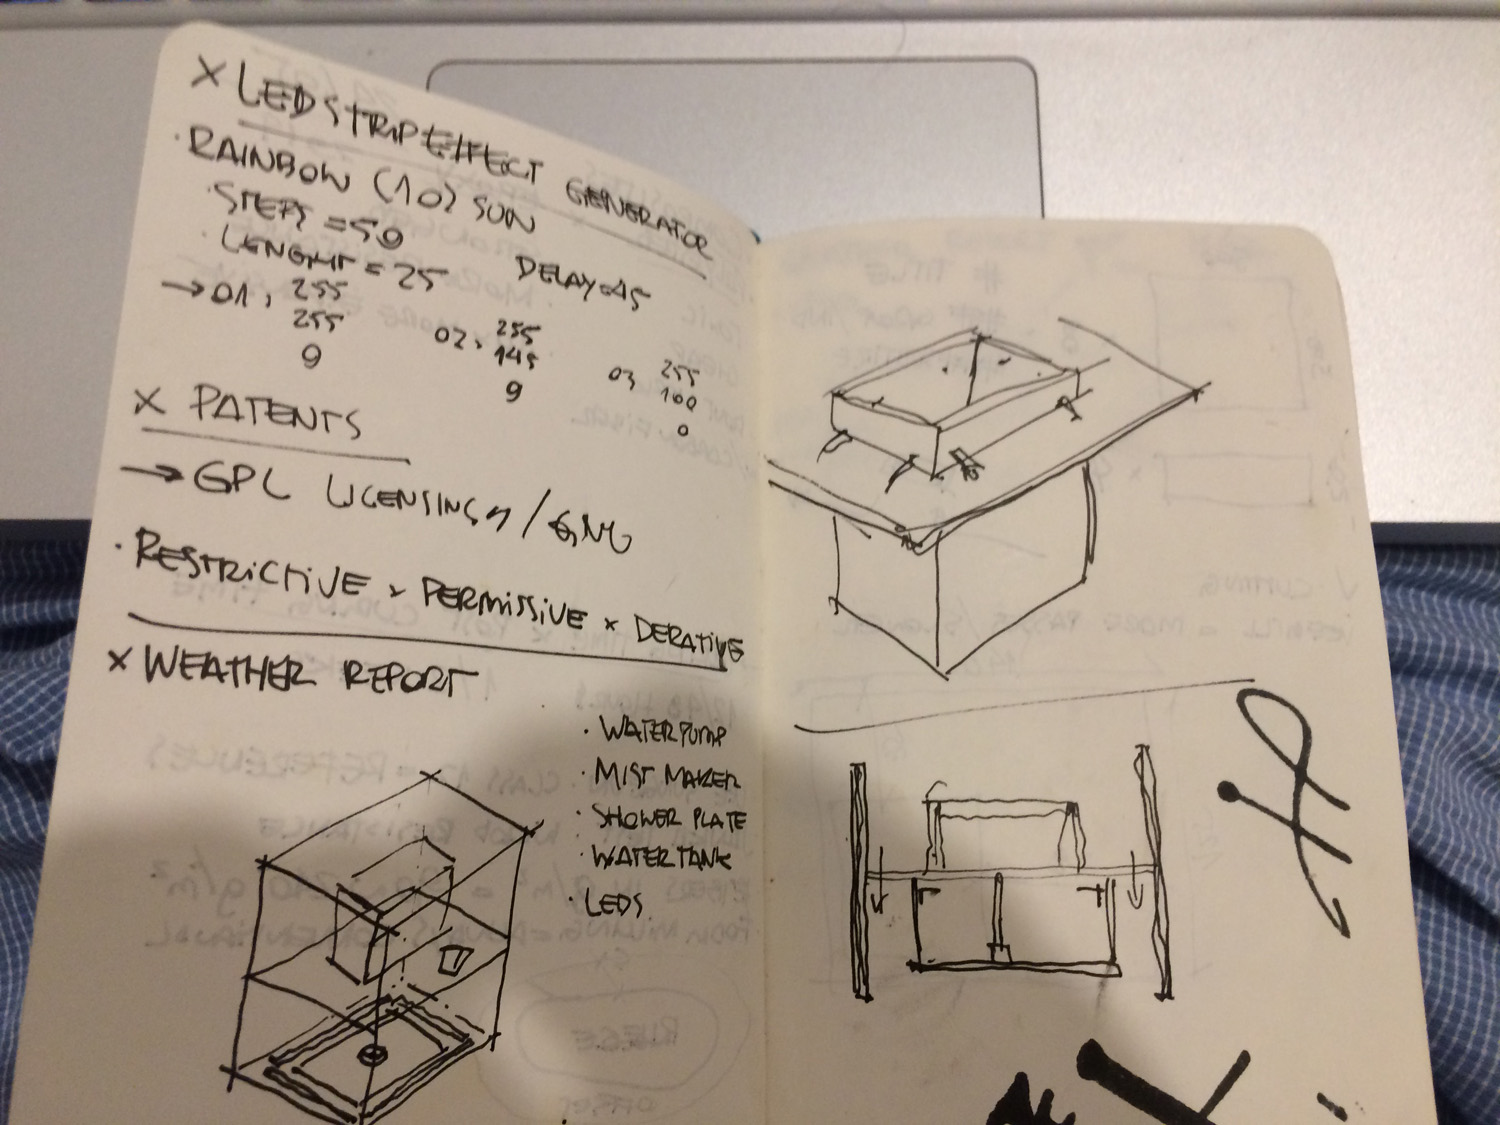 × LED STRIP EFFECT GENERATOR
· RAINBOW (10) SUN
· STEPS = 50
· LENGHT = 25 DELAY=45
→ 01, 255 255 0
02, 255 145 0
03 255 100 0
× PATENTS
→ GPL LICENSING / GNU
· RESTRICTIVE × PERMISSIVE × DERATIVE
× WEATHER REPORT
· WATER PUMP
· MIST MAKER
· SHOWER PLATE
· WATER TANK
· LEDS